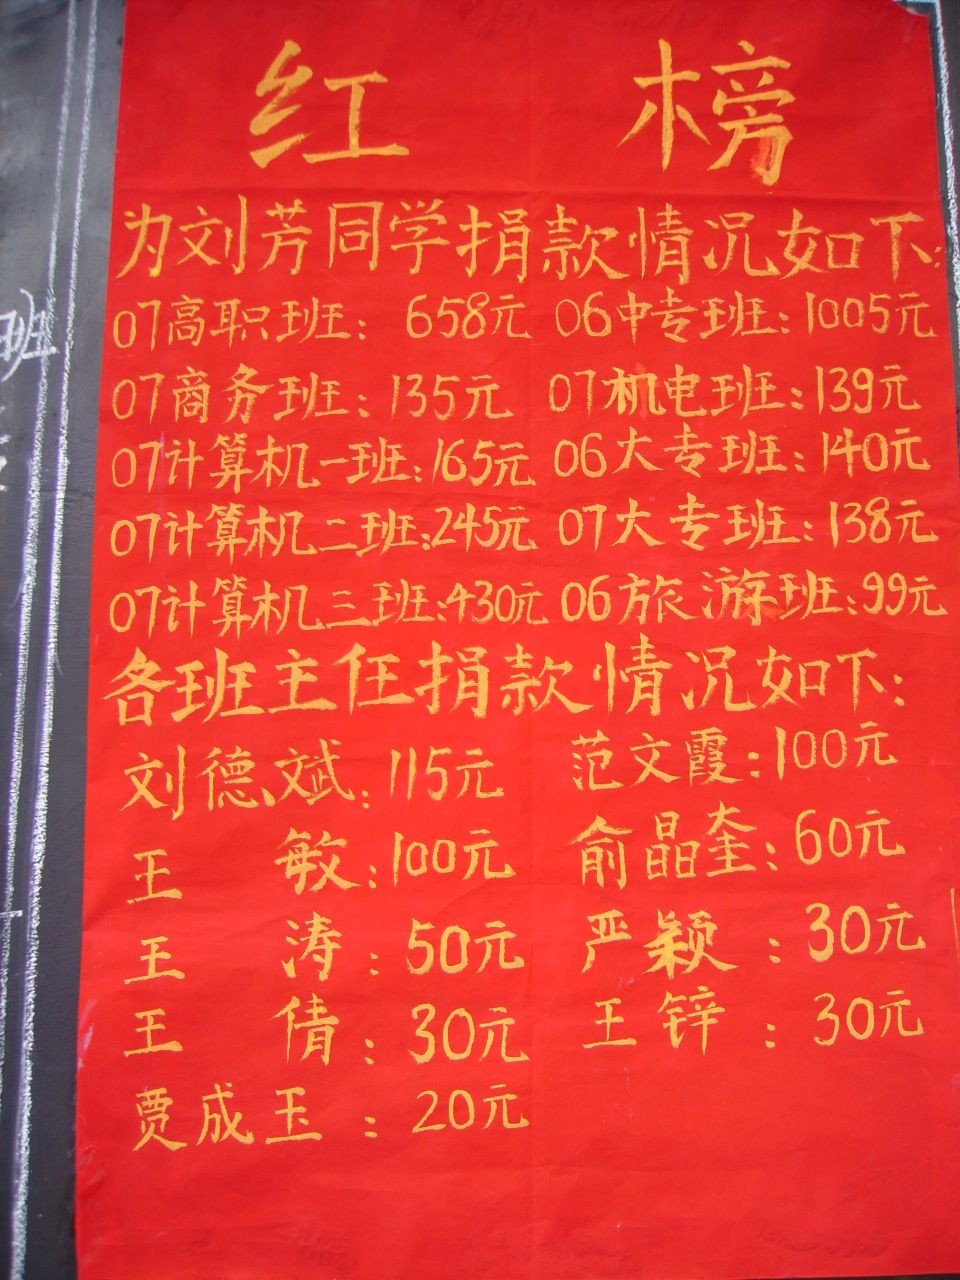 红榜
为刘芳同学捐款情况如下:
07高职班:658元 06中专班:1005元
07商务班:135元 07机电班:139元
07计算机一班:165元 06大专班:140元
07计算机二班:245元 07大专班:138元
07计算机三班:430元 06旅游班:99元
各班主任捐款情况如下:
刘德斌:115元 范文霞:100元
王敏:100元 俞晶奎:60元
王涛:50元 严颖:30元
王倩:30元 王锌:30元
贾成玉:20元
班